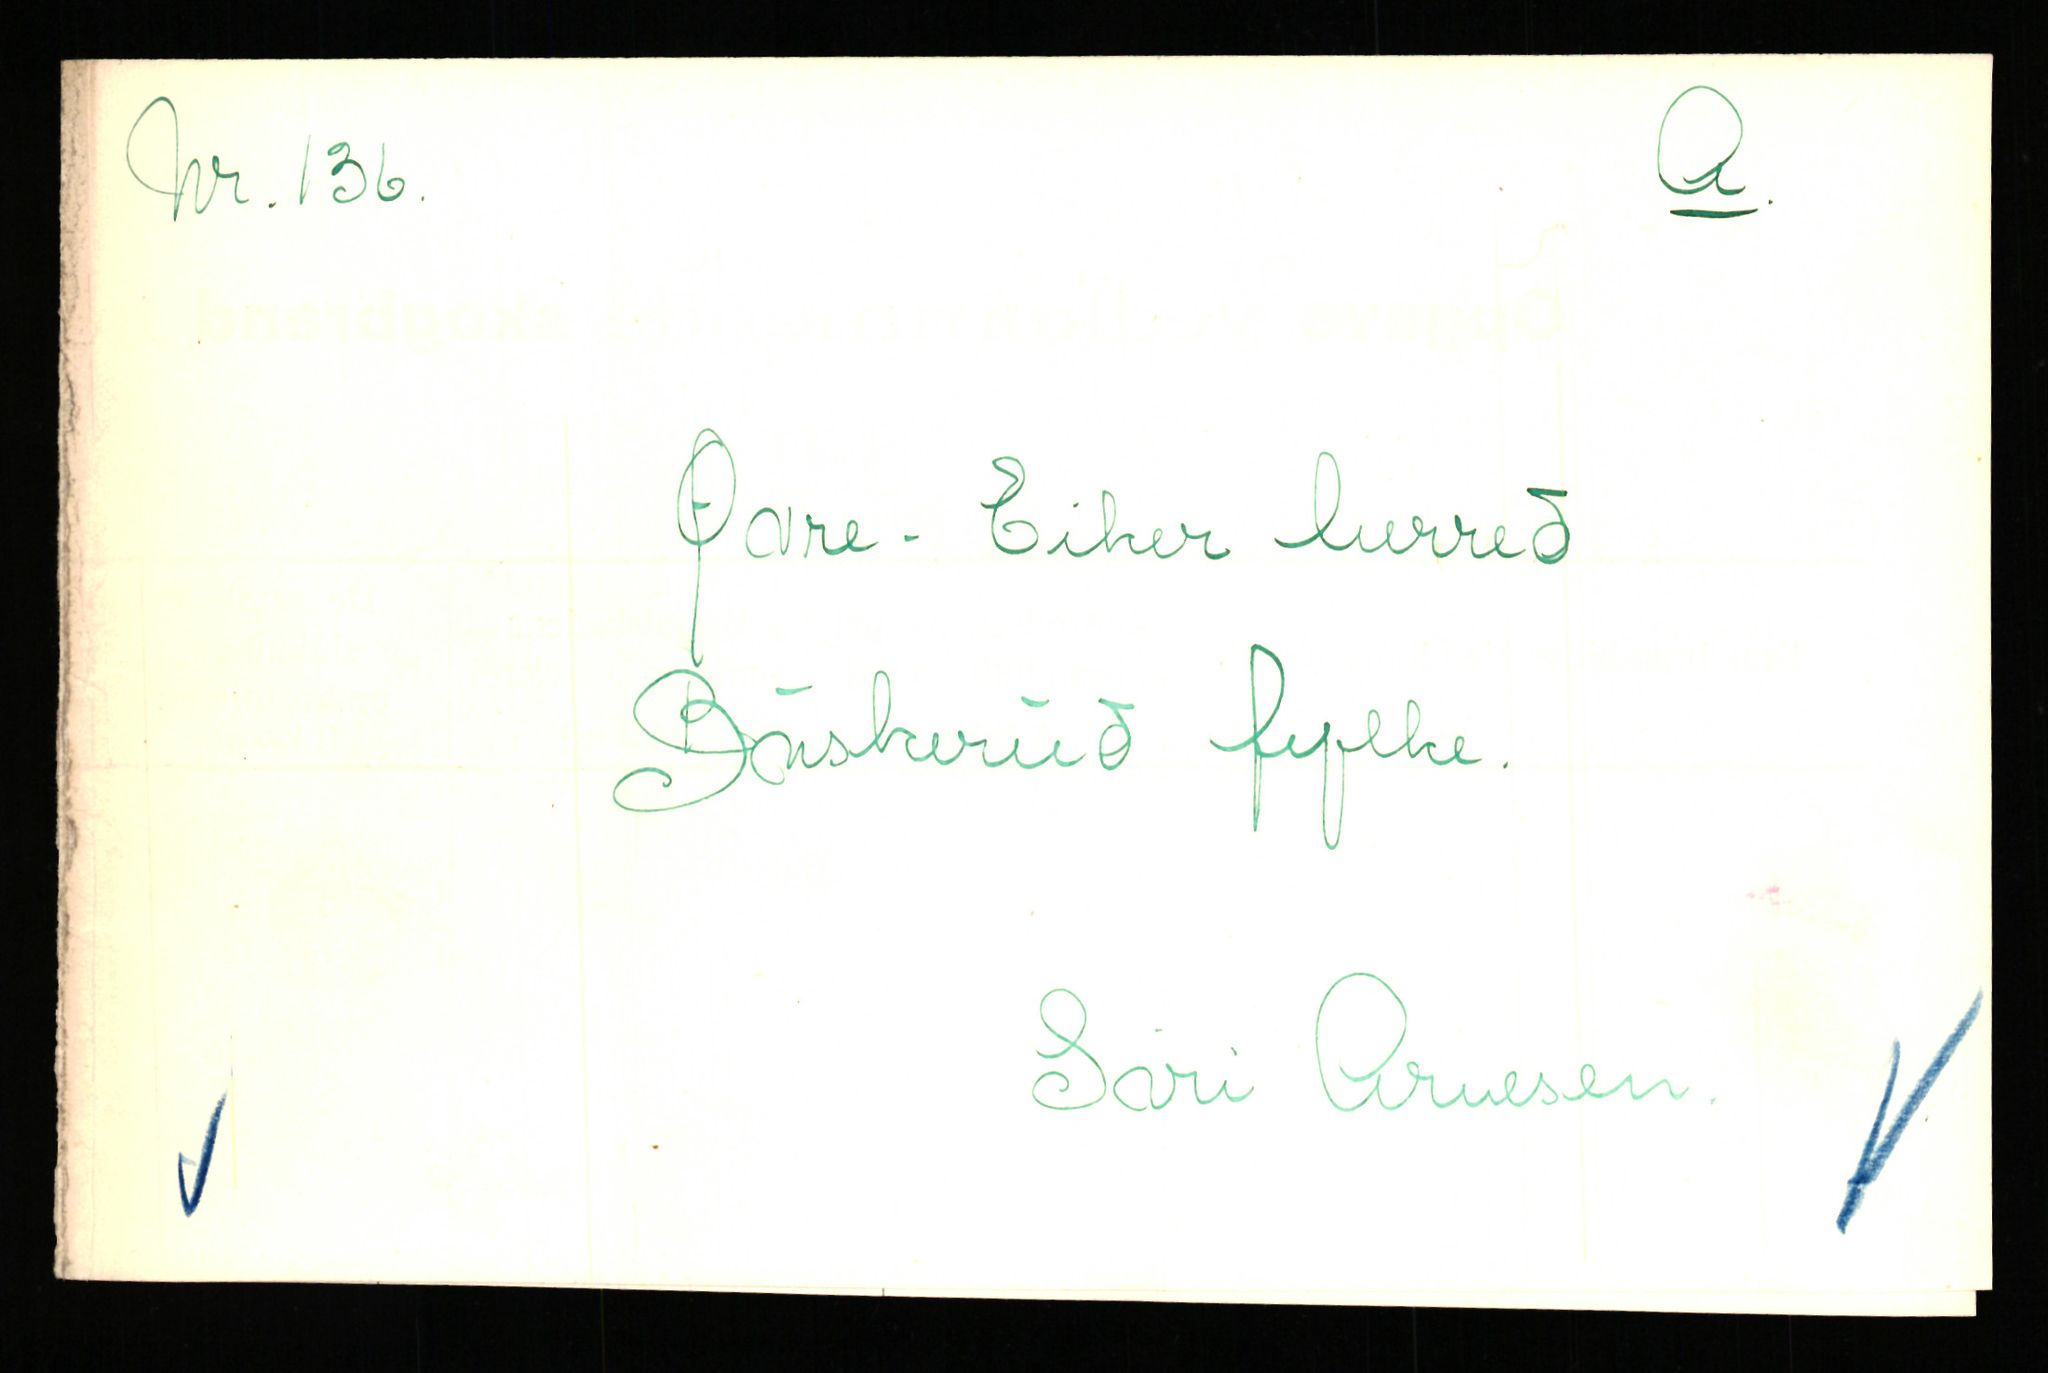 Nr. 136. A.
Øvre - Eiker herred
Buskerud fylke.
Siri Arnesen.
Opgave skogbrand